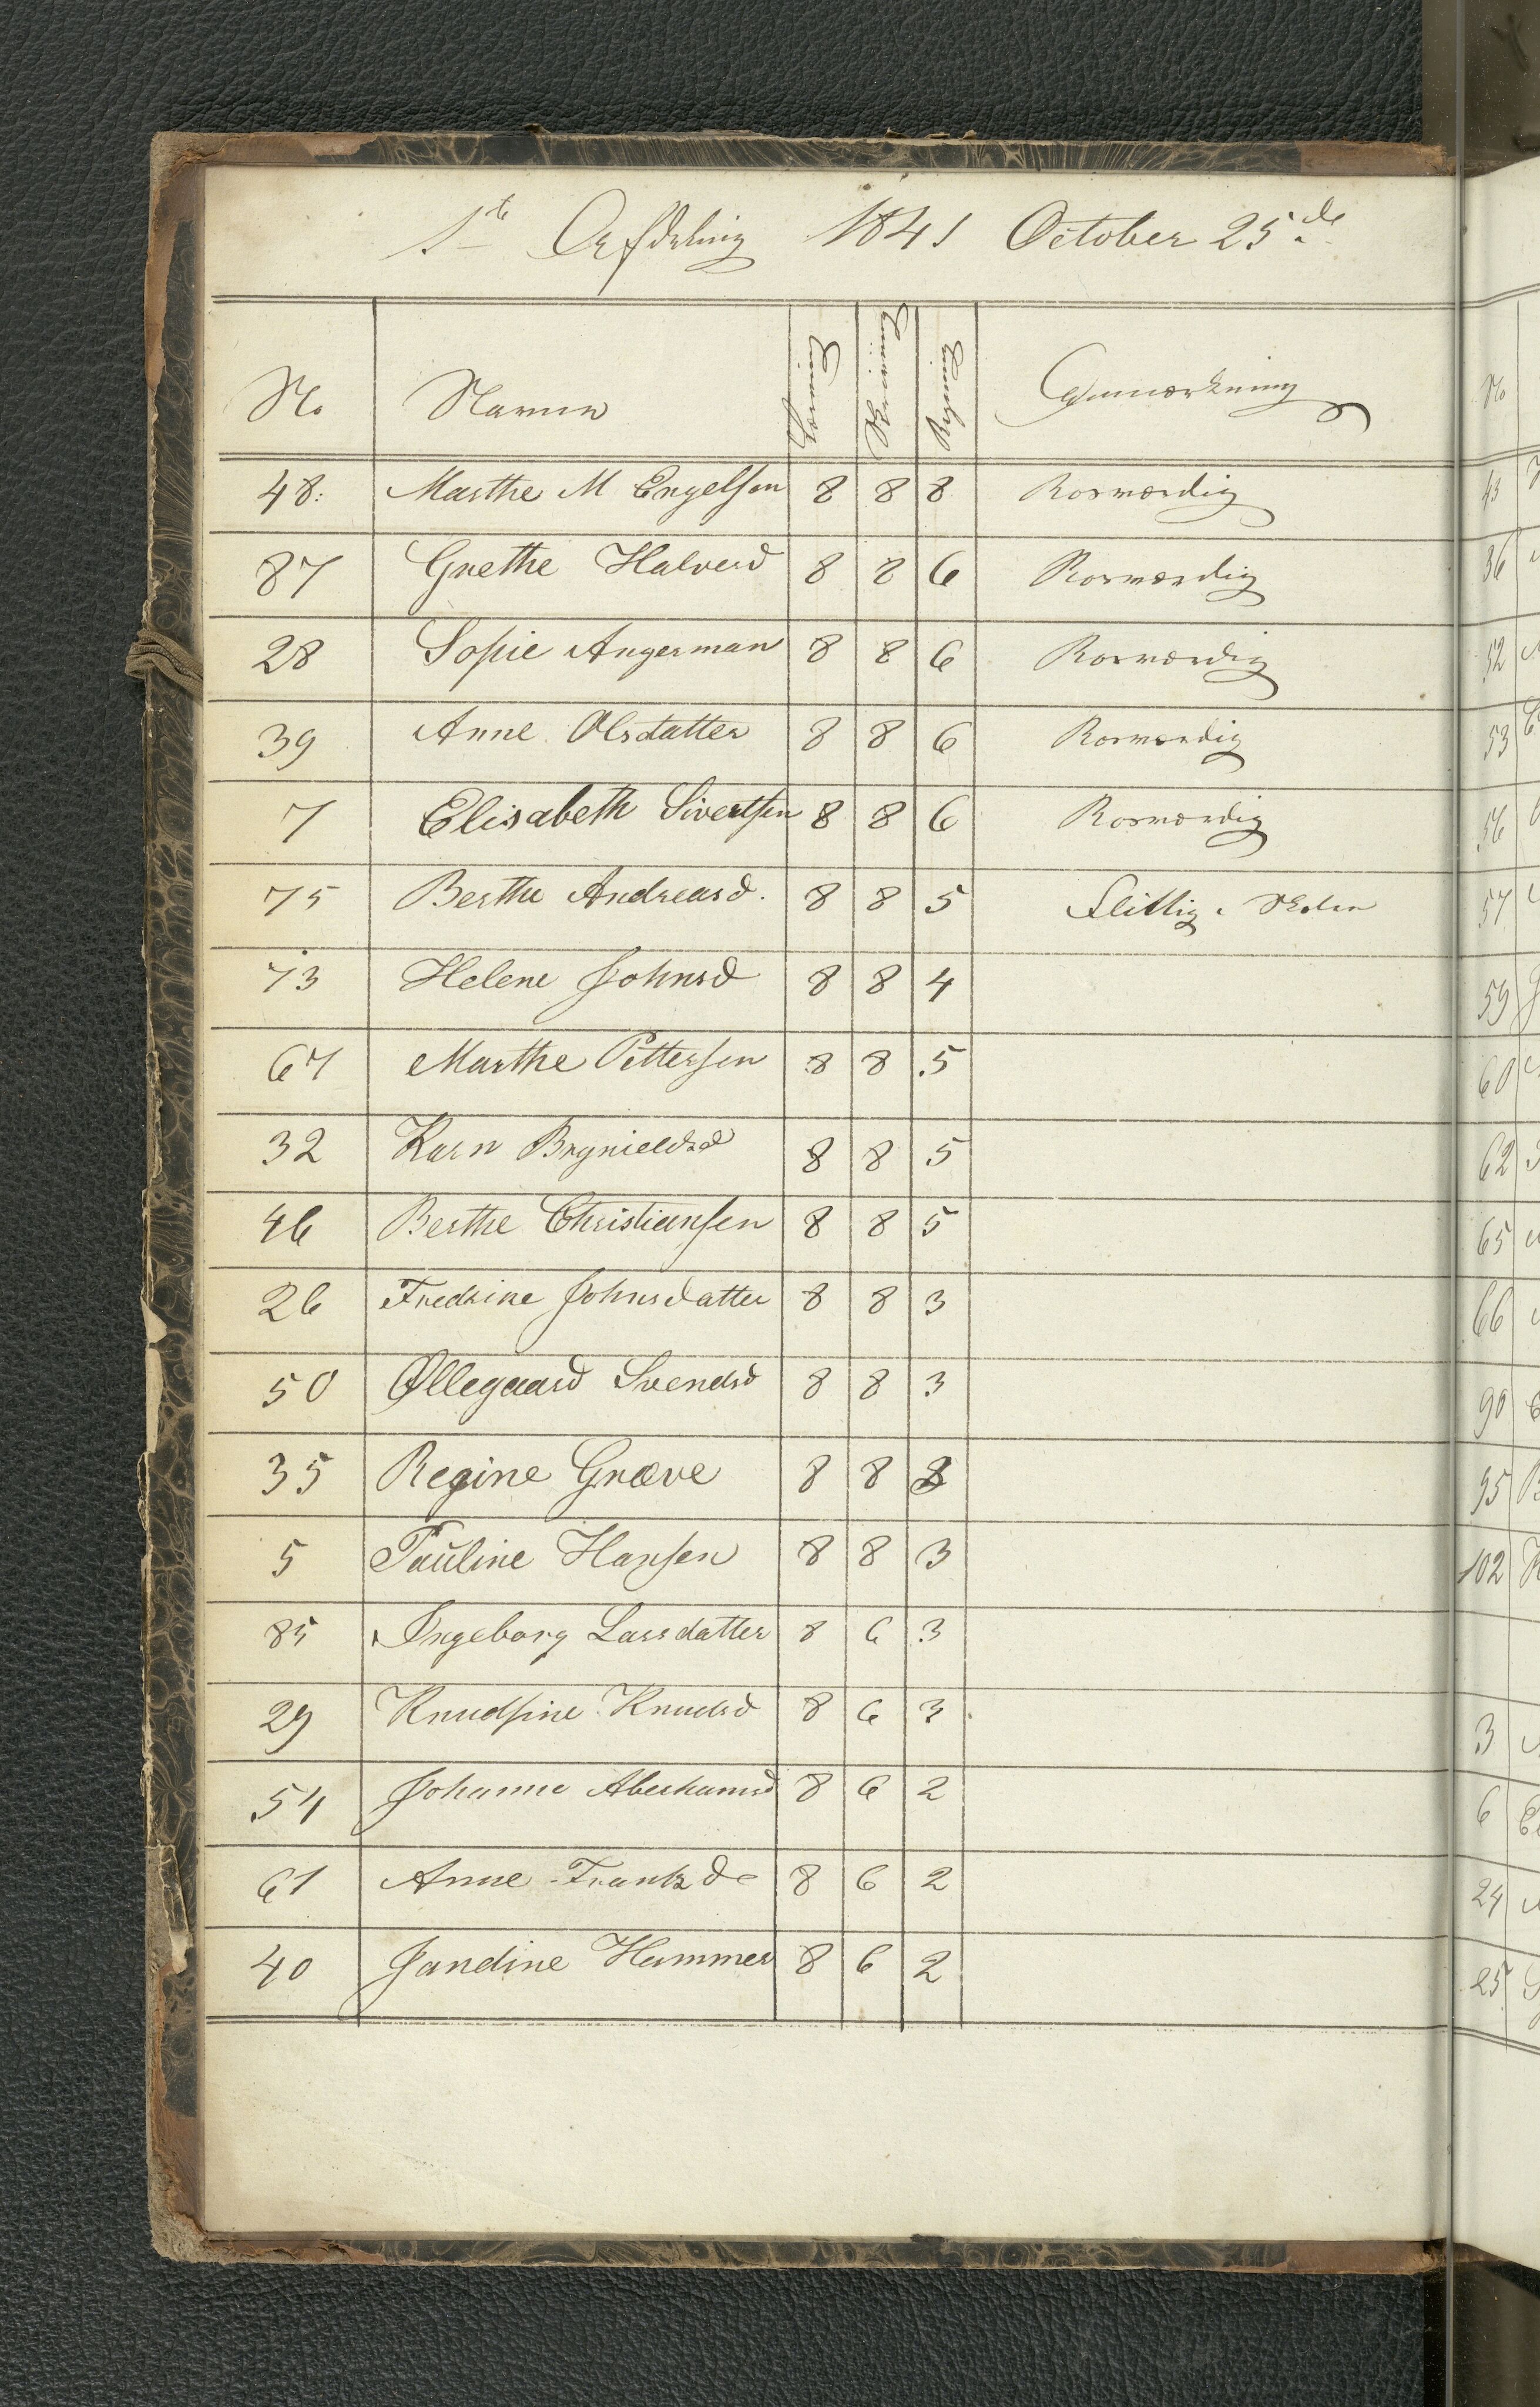 1te Afdeling 1841 October 25de
No Navnen Læsning Skrivning Regning Anmærkning
48: Marthe M Engelsen 8 8 8 Rosværdig
87 Grethe Halversd 8 8 6 Rosværdig
28 Sophie Angerman 8 8 6 Rosværdig
39 Anne Olsdatter 8 8 6 Rosværdig
7 Elisabeth Sivertsen 8 8 6 Rosværdig
75 Berthe Andreasd. 8 8 5 Flittig
73 Helene Johnsd 8 8 4
67 Marthe Pettersen 8 8 5
32 Karn Brynieldsd 8 8 5
46 Berthe Christiansen 8 8 5
26 Fredrine Johnsdatter 8 8 3
50 Øllegaard Svendsd 8 8 3
35 Regine Græve 8 8 3
5 Pauline Hansen 8 8 3
85 Ingeborg Larsdatter 8 6 3
29 Knudsine Knudsd 8 6 3
54 Johanne Aberhamsd 8 6 2
61 Anne Frantzd 8 6 2
40 Jandine Hammer 8 6 2
No
43
36
52
53
56
57
59
60
62
65
66
90
95
102
3
6
24
25